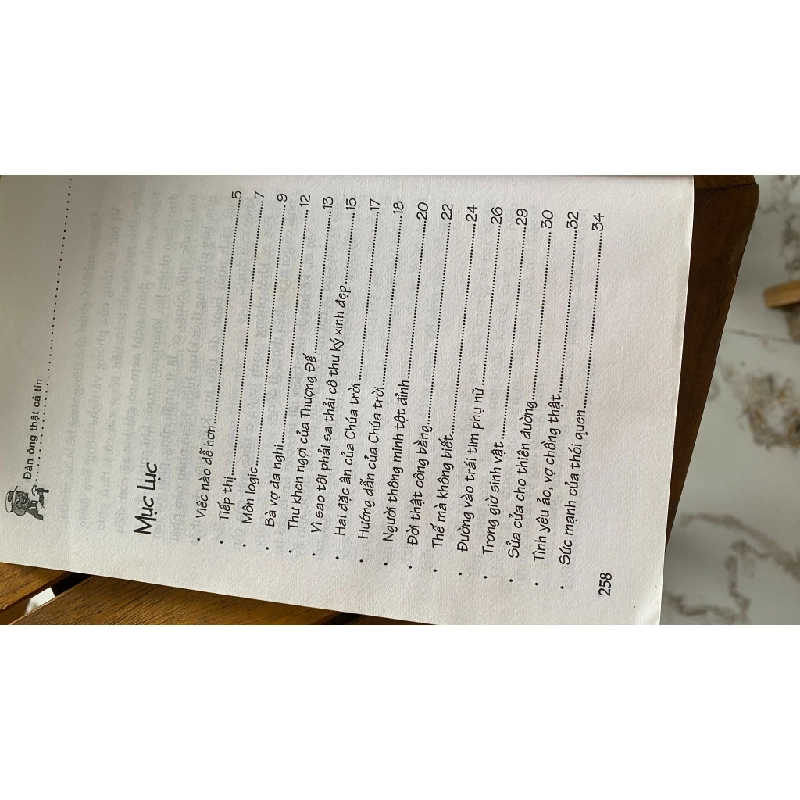 Đàn ông thật cá tính
Mục Lục
• Việc nào dễ hơn.....5
• Tiếp thị.....7
• Môn logic.....9
• Bà vợ đa nghi.....12
• Thư khen ngợi của Thượng Đế.....13
• Vì sao tôi phải sa thải cô thư ký xinh đẹp.....15
• Hai đặc ân của Chúa trời.....17
• Hướng dẫn của Chúa trời.....18
• Người thông minh tột đỉnh.....20
• Đời thật công bằng.....22
• Thế mà không biết.....24
• Đường vào trái tim phụ nữ.....26
• Trong giờ sinh vật.....29
• Sửa cửa cho thiên đường.....30
• Tình yêu ảo, vợ chồng thật.....32
• Sức mạnh của thói quen.....34
258